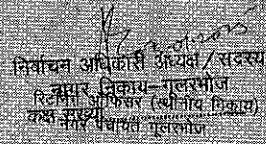 निर्वाचन अधिकारी अध्यक्ष/सदस्य
नगर निकाय-गूलरभोज
रिटर्निंग ऑफिसर (स्थानीय निकाय)
कक्ष संख्या
नगर पंचायत गूलरभोज